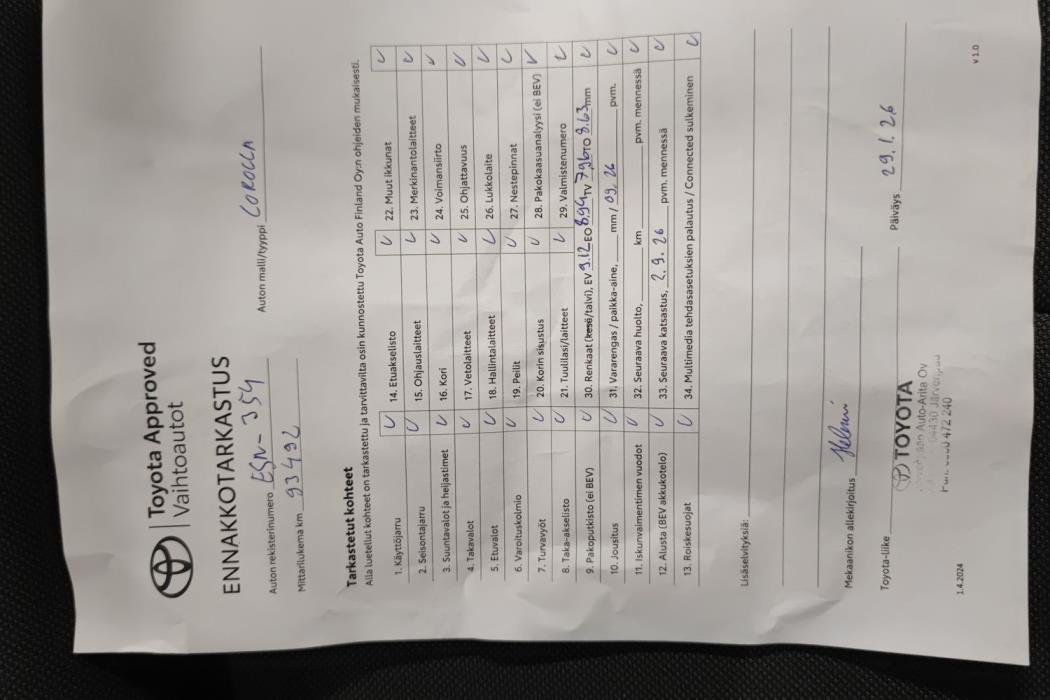 Toyota Approved
Vaihtoautot
ENNAKKOTARKASTUS
Auton rekisterinumero ESN-354 Auton malli/tyyppi COROLLA
Mittarilukema km 93492
Tarkastetut kohteet
Alla luetellut kohteet on tarkastettu ja tarvittavilta osin kunnostettu Toyota Auto Finland Oy:n ohjeiden mukaisesti.
1. Käyttöjarru
2. Seisontajarru
3. Suuntavalot ja heijastimet
4. Takavalot
5. Etuvalot
6. Varoituskolmio
7. Turvavyöt
8. Taka-akselisto
9. Pakoputkisto (ei BEV)
10. Jousitus
11. Iskunvaimentimen vuodot
12. Alusta (BEV akkukotelo)
13. Roiskesuojat
14. Etuakselisto
15. Ohjauslaitteet
16. Kori
17. Vetolaitteet
18. Hallintalaitteet
19. Peilit
20. Korin sisustus
21. Tuulilasi/laitteet
22. Muut ikkunat
23. Merkinantolaitteet
24. Voimansiirto
25. Ohjattavuus
26. Lukkolaite
27. Nestepinnat
28. Pakokaasuanalyysi (ei BEV)
29. Valmistenumero
30. Renkaat (kesä/talvi), EV 9.12 EO 8.94 TV 7.96 TO 8.63 mm
31. Vararengas / paikka-aine, mm / 09. 26 pvm.
32. Seuraava huolto, km pvm. mennessä
33. Seuraava katsastus, 2. 9. 26 pvm. mennessä
34. Multimedia tehdasasetuksien palautus / Connected sulkeminen
Lisäselvityksiä:
Mekaanikon allekirjoitus Helmi
Toyota-liike TOYOTA Päiväys 29. 1. 26
Auto-Arita Oy
04430 Järvenpää
472 240
1.4.2024 v 1.0